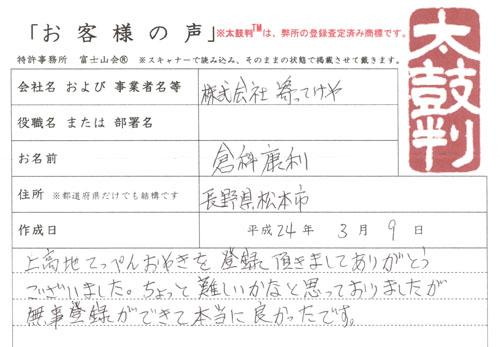 「お客様の声」※太鼓判™は、弊所の登録査定済み商標です。
特許事務所 富士山会® ※スキャナーで読み込み、そのままの状態で掲載させて戴きます。
太鼓判
会社名 および 事業者名等 株式会社 寄ってけや
役職名 または 部署名
お名前 倉科康利
住所 ※都道府県だけでも結構です 長野県松本市
作成日 平成 24 年 3 月 9 日
上高地てっぺんおやきを 登録頂きましてありがとう
ございました。ちょっと難しいかなと思っておりましたが
無事登録ができて本当に良かったです。